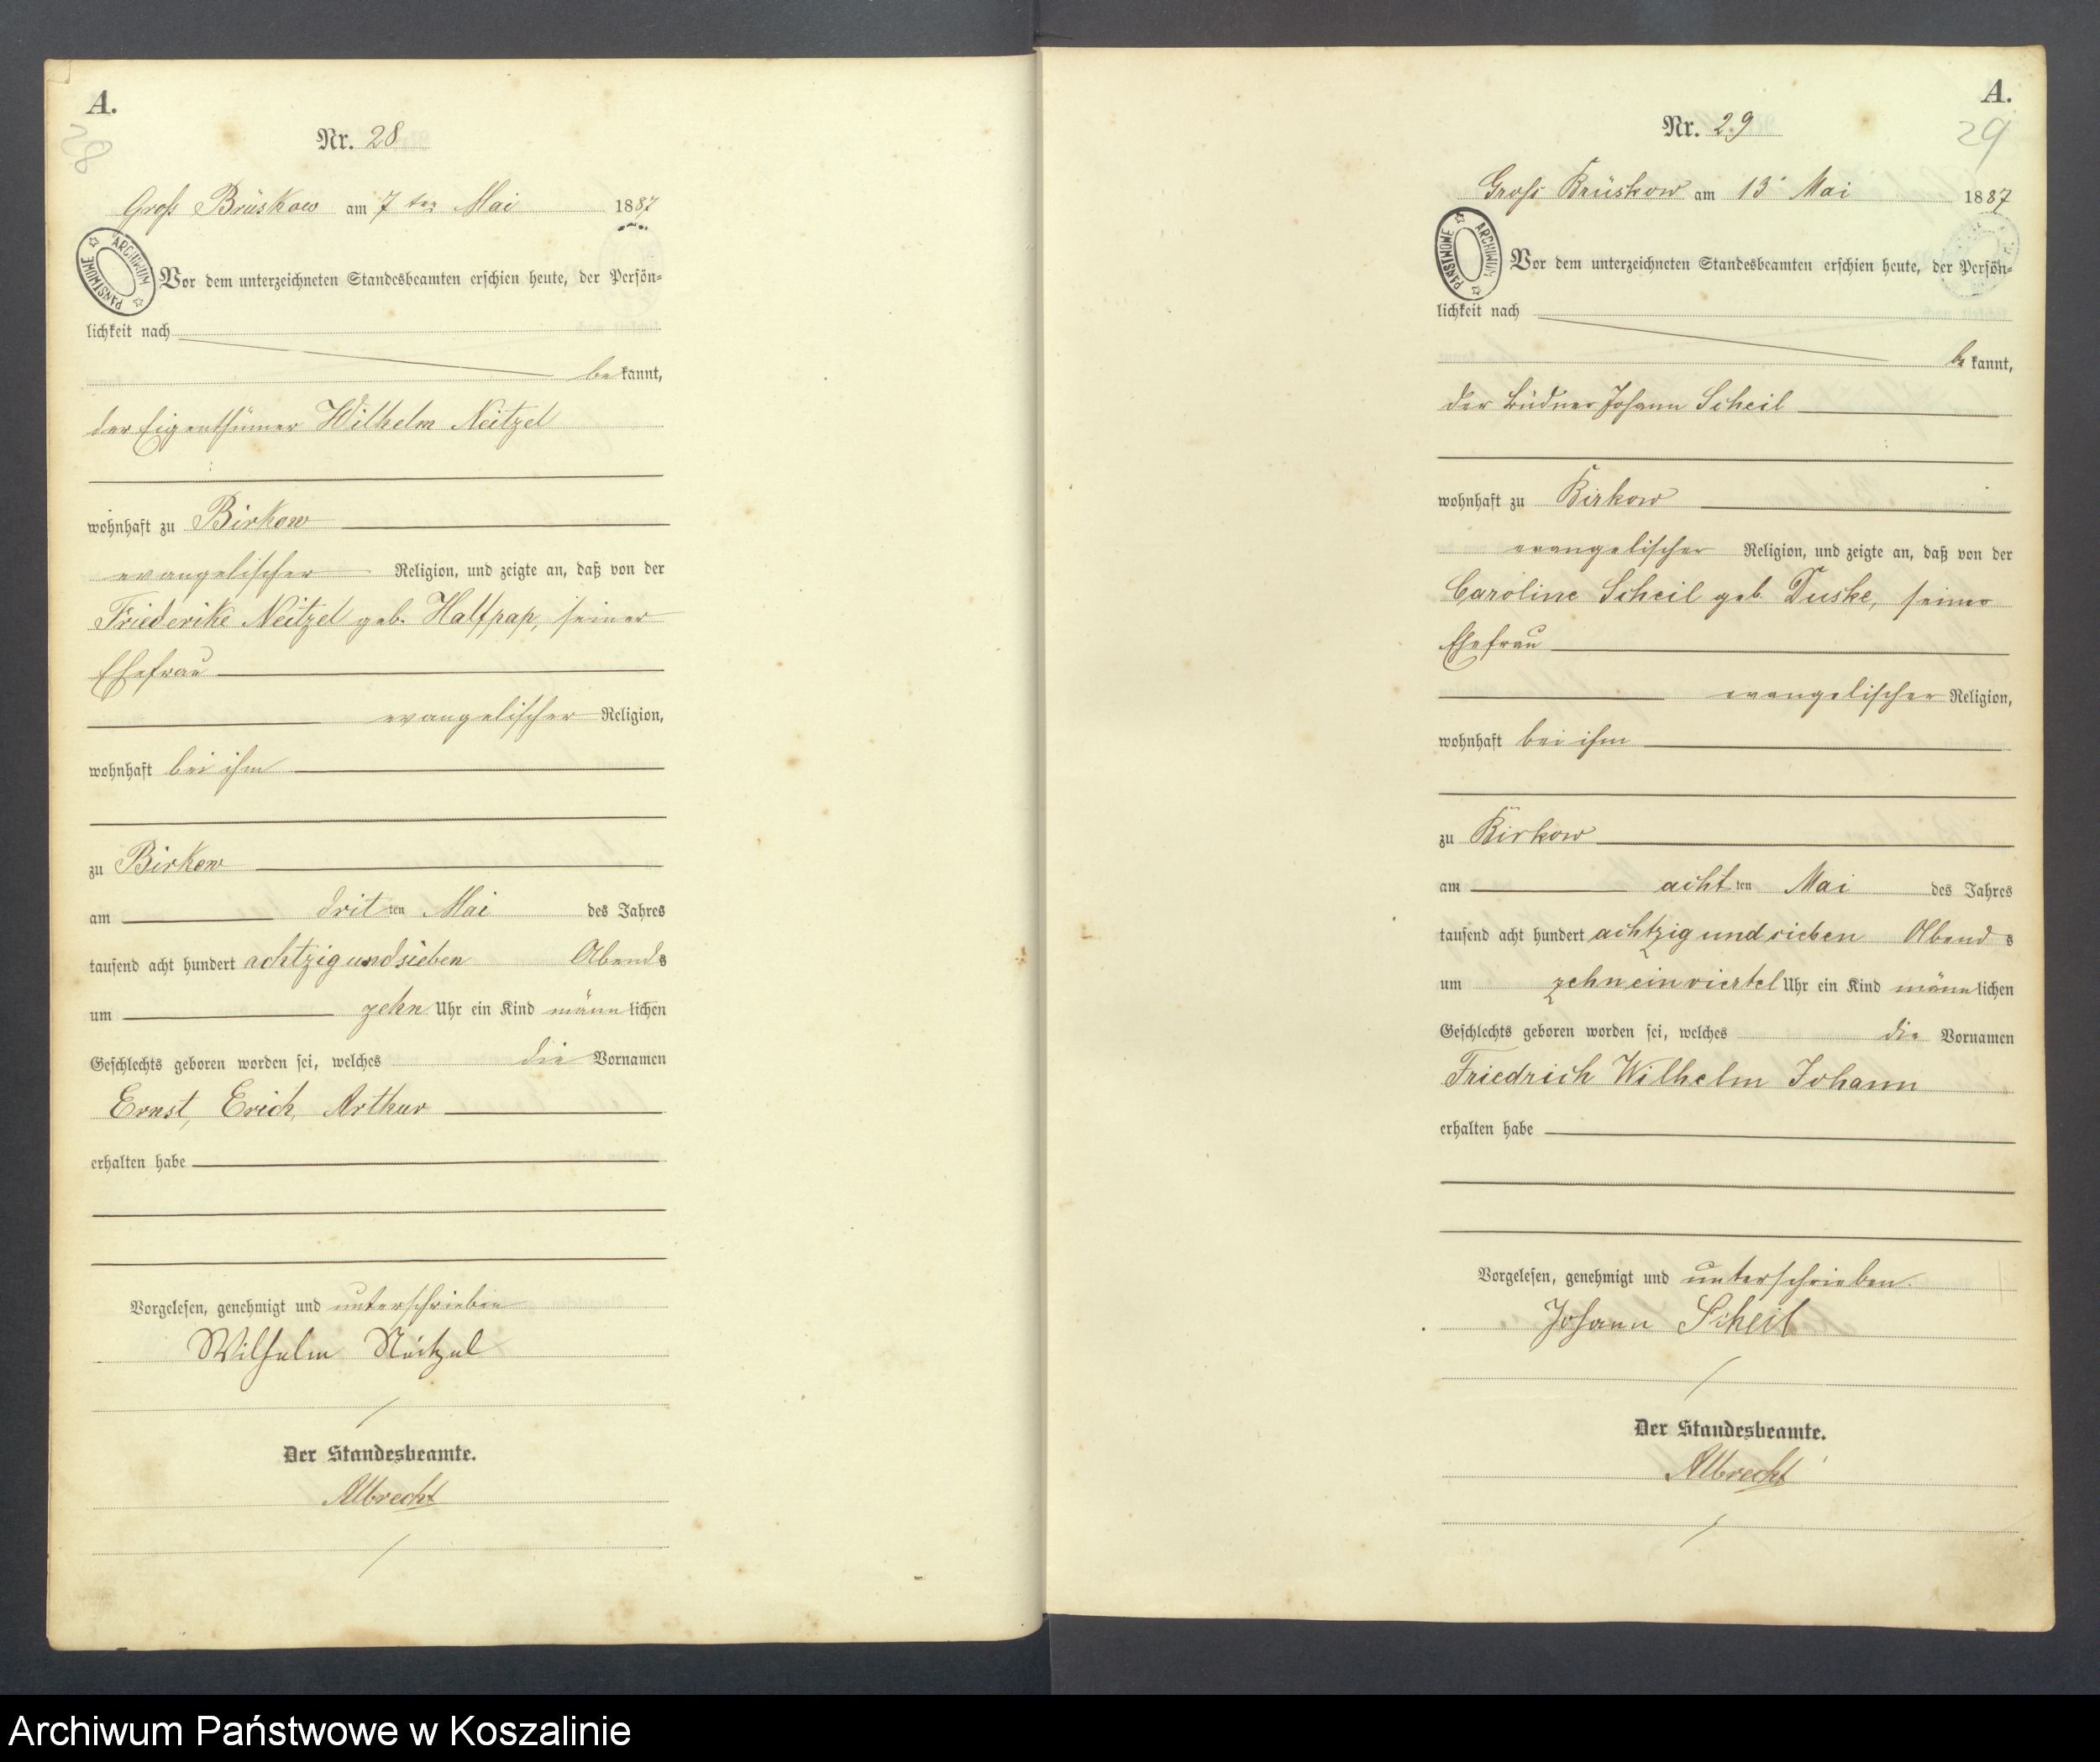 A.
28
Nr. 28
Groß Brüskow am 7ten Mai 1887
ARCHIWUM PAŃSTWOWE
Vor dem unterzeichneten Standesbeamten erschien heute, der Persön-
lichkeit nach
bekannt,
der Eigenthümer Wilhelm Neitzel
wohnhaft zu Birkow
evangelischer Religion, und zeigte an, daß von der
Friederike Neitzel geb. Halfpap, seiner
Ehefrau
evangelischer Religion,
wohnhaft bei ihm
zu Birkow
am dritten Mai des Jahres
tausend acht hundert achtzigundsieben Abends
um zehn Uhr ein Kind männlichen
Geschlechts geboren worden sei, welches die Vornamen
Ernst, Erich, Arthur
erhalten habe
Vorgelesen, genehmigt und unterschrieben
Wilhelm Neitzel
Der Standesbeamte.
Albrecht
A.
29
Nr. 29
Groß Brüskow am 13 Mai 1887
ARCHIWUM PAŃSTWOWE
Vor dem unterzeichneten Standesbeamten erschien heute, der Persön-
lichkeit nach
bekannt,
der Büdner Johann Scheil
wohnhaft zu Birkow
evangelischer Religion, und zeigte an, daß von der
Caroline Scheil geb. Duske, seiner
Ehefrau
evangelischer Religion,
wohnhaft bei ihm
zu Birkow
am achtten Mai des Jahres
tausend acht hundert achtzig und sieben Abends
um zehn ein viertel Uhr ein Kind männlichen
Geschlechts geboren worden sei, welches die Vornamen
Friedrich Wilhelm Johann
erhalten habe
Vorgelesen, genehmigt und unterschrieben.
Johann Scheil
Der Standesbeamte.
Albrecht
Archiwum Państwowe w Koszalinie